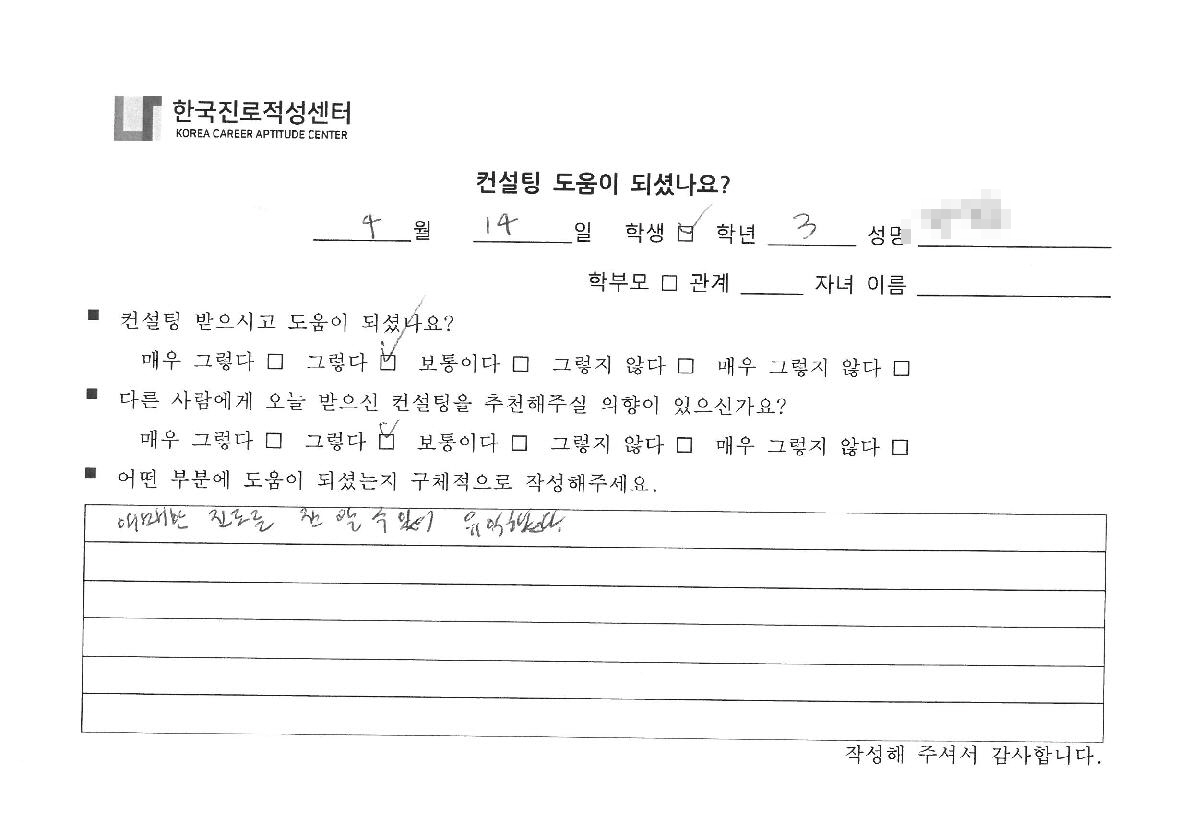 한국진로적성센터
KOREA CAREER APTITUDE CENTER
컨설팅 도움이 되셨나요?
4 월 14 일 학생 ☑ 학년 3 성명
학부모 □ 관계 자녀 이름
■ 컨설팅 받으시고 도움이 되셨나요?
매우 그렇다 □ 그렇다 ☑ 보통이다 □ 그렇지 않다 □ 매우 그렇지 않다 □
■ 다른 사람에게 오늘 받으신 컨설팅을 추천해주실 의향이 있으신가요?
매우 그렇다 □ 그렇다 ☑ 보통이다 □ 그렇지 않다 □ 매우 그렇지 않다 □
■ 어떤 부분에 도움이 되셨는지 구체적으로 작성해주세요.
애매한 진로를 잘 알 수 있어 유익했다.
작성해 주셔서 감사합니다.